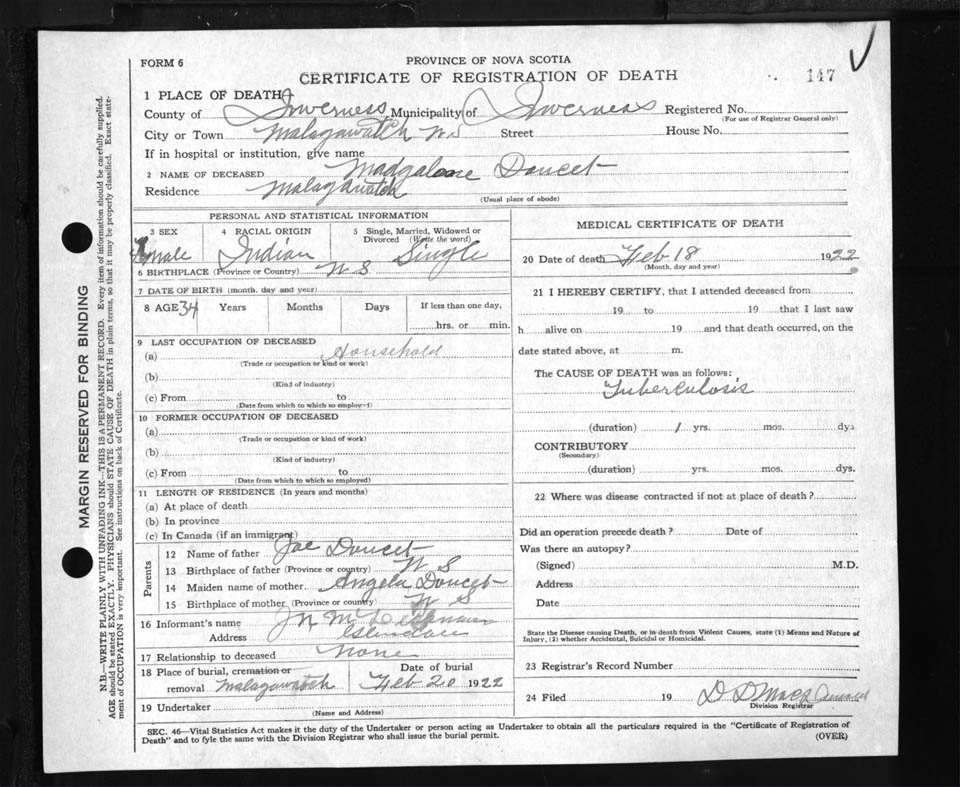 FORM 6
PROVINCE OF NOVA SCOTIA
CERTIFICATE OF REGISTRATION OF DEATH
147
1 PLACE OF DEATH
County of Inverness Municipality of Inverness Registered No.
(For use of Registrar General only)
City or Town Malagawatch N S Street House No.
If in hospital or institution, give name
2 NAME OF DECEASED Madgalene Doucet
Residence Malagawatch
(Usual place of abode)
PERSONAL AND STATISTICAL INFORMATION
3 SEX 4 RACIAL ORIGIN 5 Single, Married, Widowed or Divorced (Write the word)
Female Indian Single
6 BIRTHPLACE (Province or Country) N S
7 DATE OF BIRTH (month, day and year)
8 AGE 34 Years Months Days If less than one day, hrs. or min.
9 LAST OCCUPATION OF DECEASED
(a) Household
(Trade or occupation or kind or work)
(b)
(Kind of industry)
(c) From to
(Date from which to which so employed)
10 FORMER OCCUPATION OF DECEASED
(a)
(Trade or occupation or kind of work)
(b)
(Kind of industry)
(c) From to
(Date from which to which so employed)
11 LENGTH OF RESIDENCE (In years and months)
(a) At place of death
(b) In province
(c) In Canada (if an immigrant)
Parents
12 Name of father Joe Doucet
13 Birthplace of father (Province or country) N S
14 Maiden name of mother Angela Doucet
15 Birthplace of mother (Province or country) N S
16 Informant's name
Address Glendale
17 Relationship to deceased None
18 Place of burial, cremation or removal Malagawatch Date of burial Feb 20 1922
19 Undertaker
(Name and Address)
MEDICAL CERTIFICATE OF DEATH
20 Date of death Feb 18 1922
(Month, day and year)
21 I HEREBY CERTIFY, that I attended deceased from
19 to 19 that I last saw
h alive on 19 and that death occurred, on the
date stated above, at m.
The CAUSE OF DEATH was as follows:
Tuberculosis
(duration) 1 yrs. mos. dys
CONTRIBUTORY
(Secondary)
(duration) yrs. mos. dys.
22 Where was disease contracted if not at place of death?
Did an operation precede death? Date of
Was there an autopsy?
(Signed) M.D.
Address
Date
State the Disease causing Death, or in death from Violent Causes, state (1) Means and Nature of
Injury, (2) whether Accidental, Suicidal or Homicidal.
23 Registrar's Record Number
24 Filed 19 D D
Division Registrar
SEC. 46—Vital Statistics Act makes it the duty of the Undertaker or person acting as Undertaker to obtain all the particulars required in the "Certificate of Registration of
Death" and to fyle the same with the Division Registrar who shall issue the burial permit. (OVER)
MARGIN RESERVED FOR BINDING
N.B.—WRITE PLAINLY WITH UNFADING INK—THIS IS A PERMANENT RECORD. Every item of information should be carefully supplied.
AGE should be stated EXACTLY. PHYSICIANS should STATE CAUSE OF DEATH in plain terms, so that it may be properly classified. Exact state-
ment of OCCUPATION is very important. See instructions on back of Certificate.